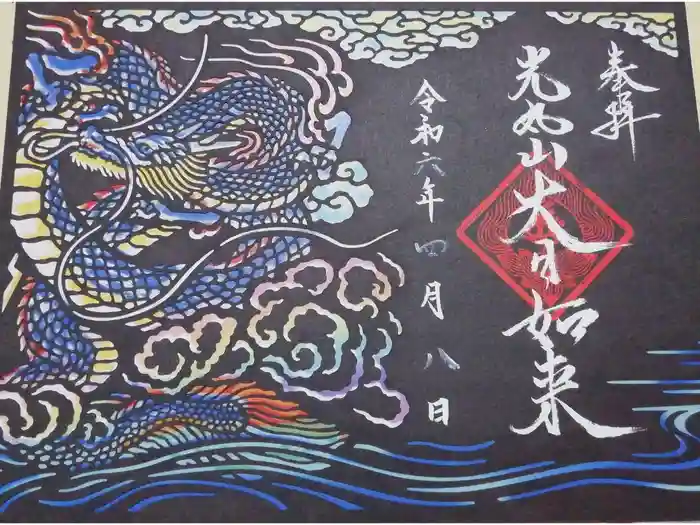 奉拝
光如山大日如来
令和六年四月八日